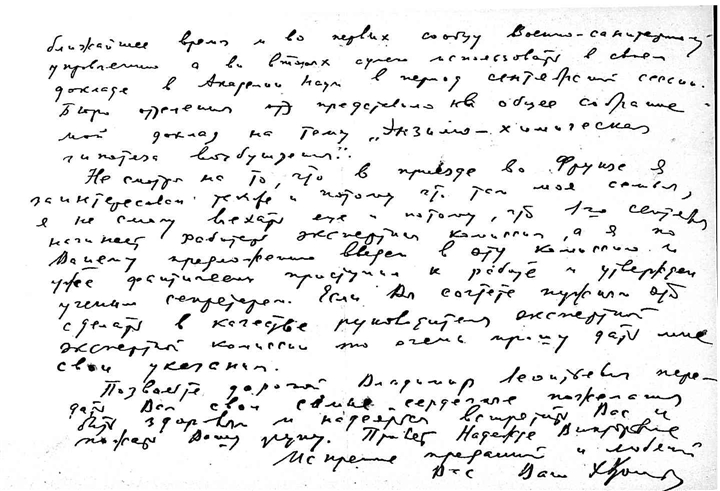 ближайшее время и во первых сообщу Военно-санитарному
управлению а во вторых сумею использовать в своем
докладе в Академии Наук в период сентябрьской сессии.
Бюро отделения представило на общее собрание
мой доклад на тему „Энзимо-химическая
гипотеза возбуждения".
Не смотря на то, что в приезде во Фрунзе я
заинтересован также и потому что там моя семья,
я не смогу выехать еще и потому, что 1го сентября
начинает работать экспертная комиссия, а я по
Вашему предложению введен в эту комиссию и
уже фактически приступил к работе и утвержден
ученым секретарем. Если Вы сочтете нужным это
сделать в качестве руководителя экспертной
экспертной комиссии то очень прошу дать мне
свои указания.
Позвольте дорогой Владимир Леонтьевич пере-
дать Вам свои самые сердечные пожелания
быть здоровым и надеяться встретить Вас и
пожать Вашу руку. Привет Надежде Викторовне
Искренне преданный и любящий
Вас Ваш